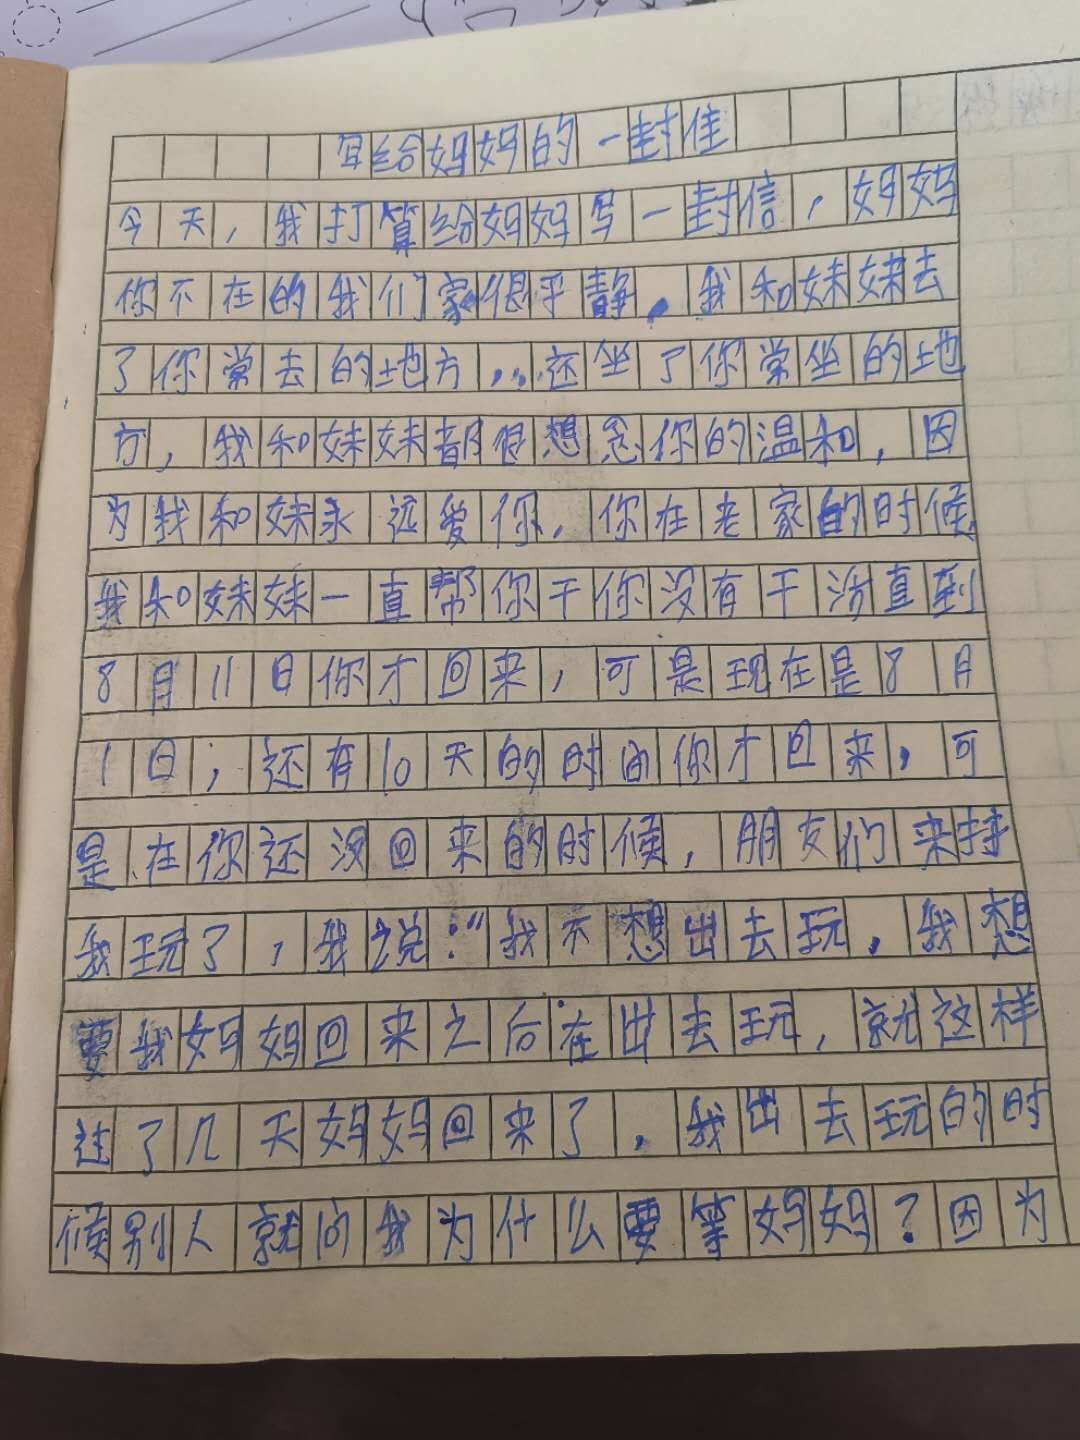 写给妈妈的一封佳
今天，我打算给妈妈写一封信，妈妈
你不在的我们家很平静，我和妹妹去
了你常去的地方，..还坐了你常坐的地
方，我和妹妹都很想念你的温和，因
为我和妹永远爱你，你在老家的时候
我和妹妹一直帮你干你没有干汤直到
8月11日你才回来，可是现在是8月
1日；还有10天的时间你才回来，可
是、在你还没回来的时候，朋友们来持
我玩了，我说：“我不想出去玩，我想
要我妈妈回来之后在出去玩，就这样
过了几天妈妈回来了，我出去玩的时
候别人就问我为什么要等妈妈？因为